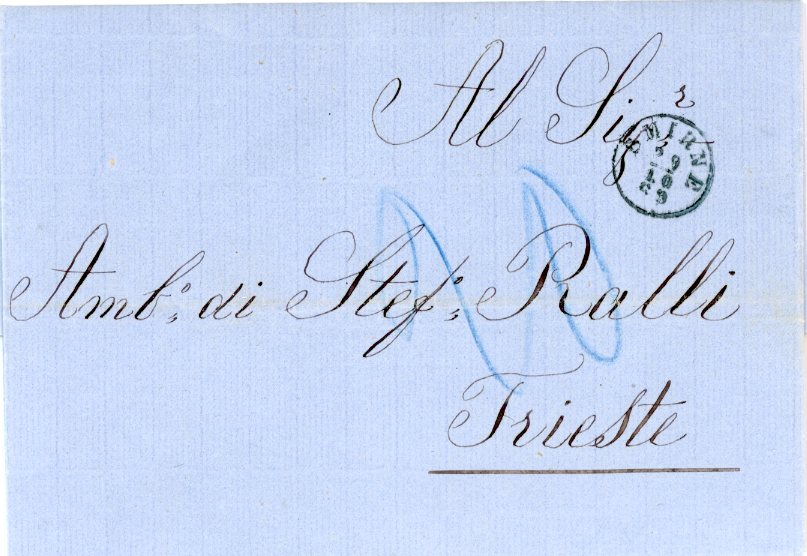 Al Sigr
SMIRNE
Amb.o di Stef.o Ralli
Trieste